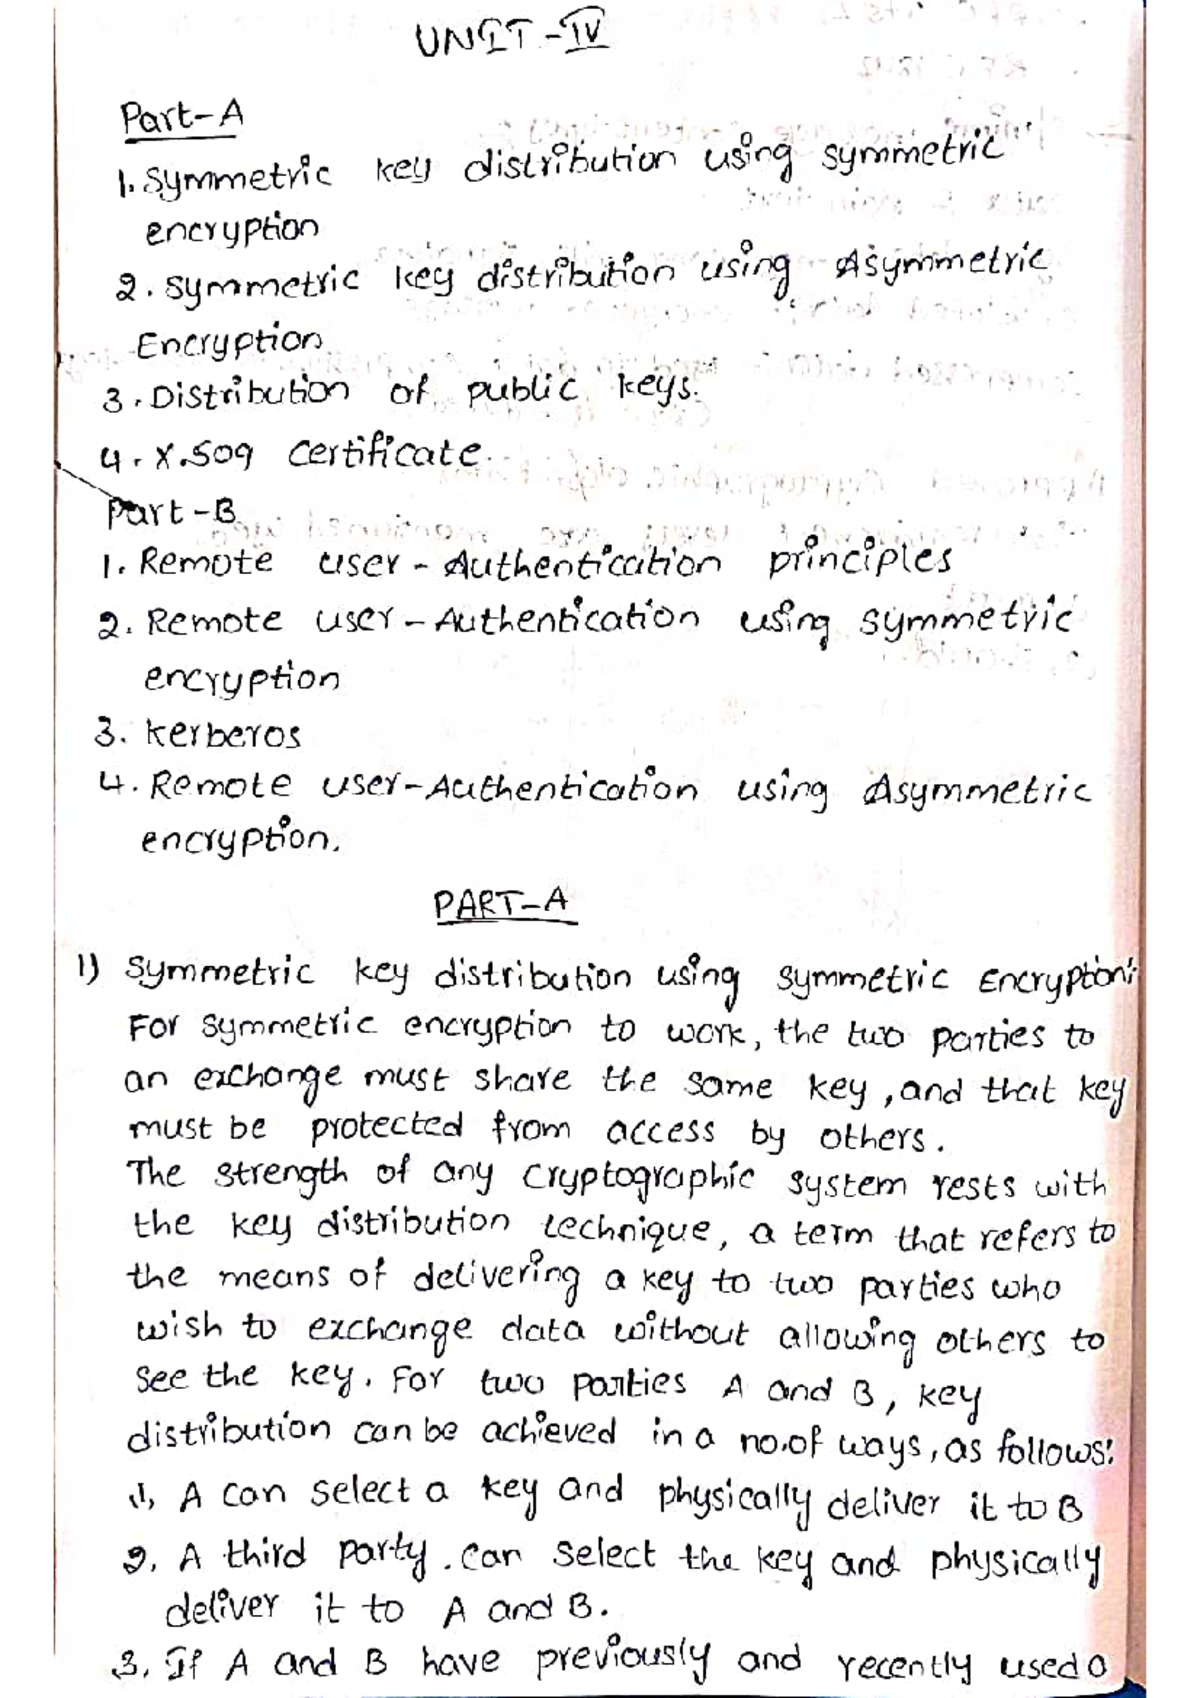 UNIT-IV
Part-A
1. Symmetric key distribution using symmetric
encryption
2. Symmetric key distribution using Asymmetric
Encryption
3. Distribution of public keys.
4. X.509 certificate.
Part-B
1. Remote user-Authentication principles
2. Remote user-Authentication using symmetric
encryption
3. kerberos
4. Remote user-Authentication using Asymmetric
encryption.
PART-A
1) Symmetric key distribution using symmetric Encryption:
For symmetric encryption to work, the two parties to
an exchange must share the same key, and that key
must be protected from access by others.
The strength of any cryptographic system rests with
the key distribution technique, a term that refers to
the means of delivering a key to two parties who
wish to exchange data without allowing others to
see the key. For two parties A and B, key
distribution can be achieved in a no.of ways, as follows:
1, A can select a key and physically deliver it to B
2, A third party can select the key and physically
deliver it to A and B.
3, If A and B have previously and recently used a